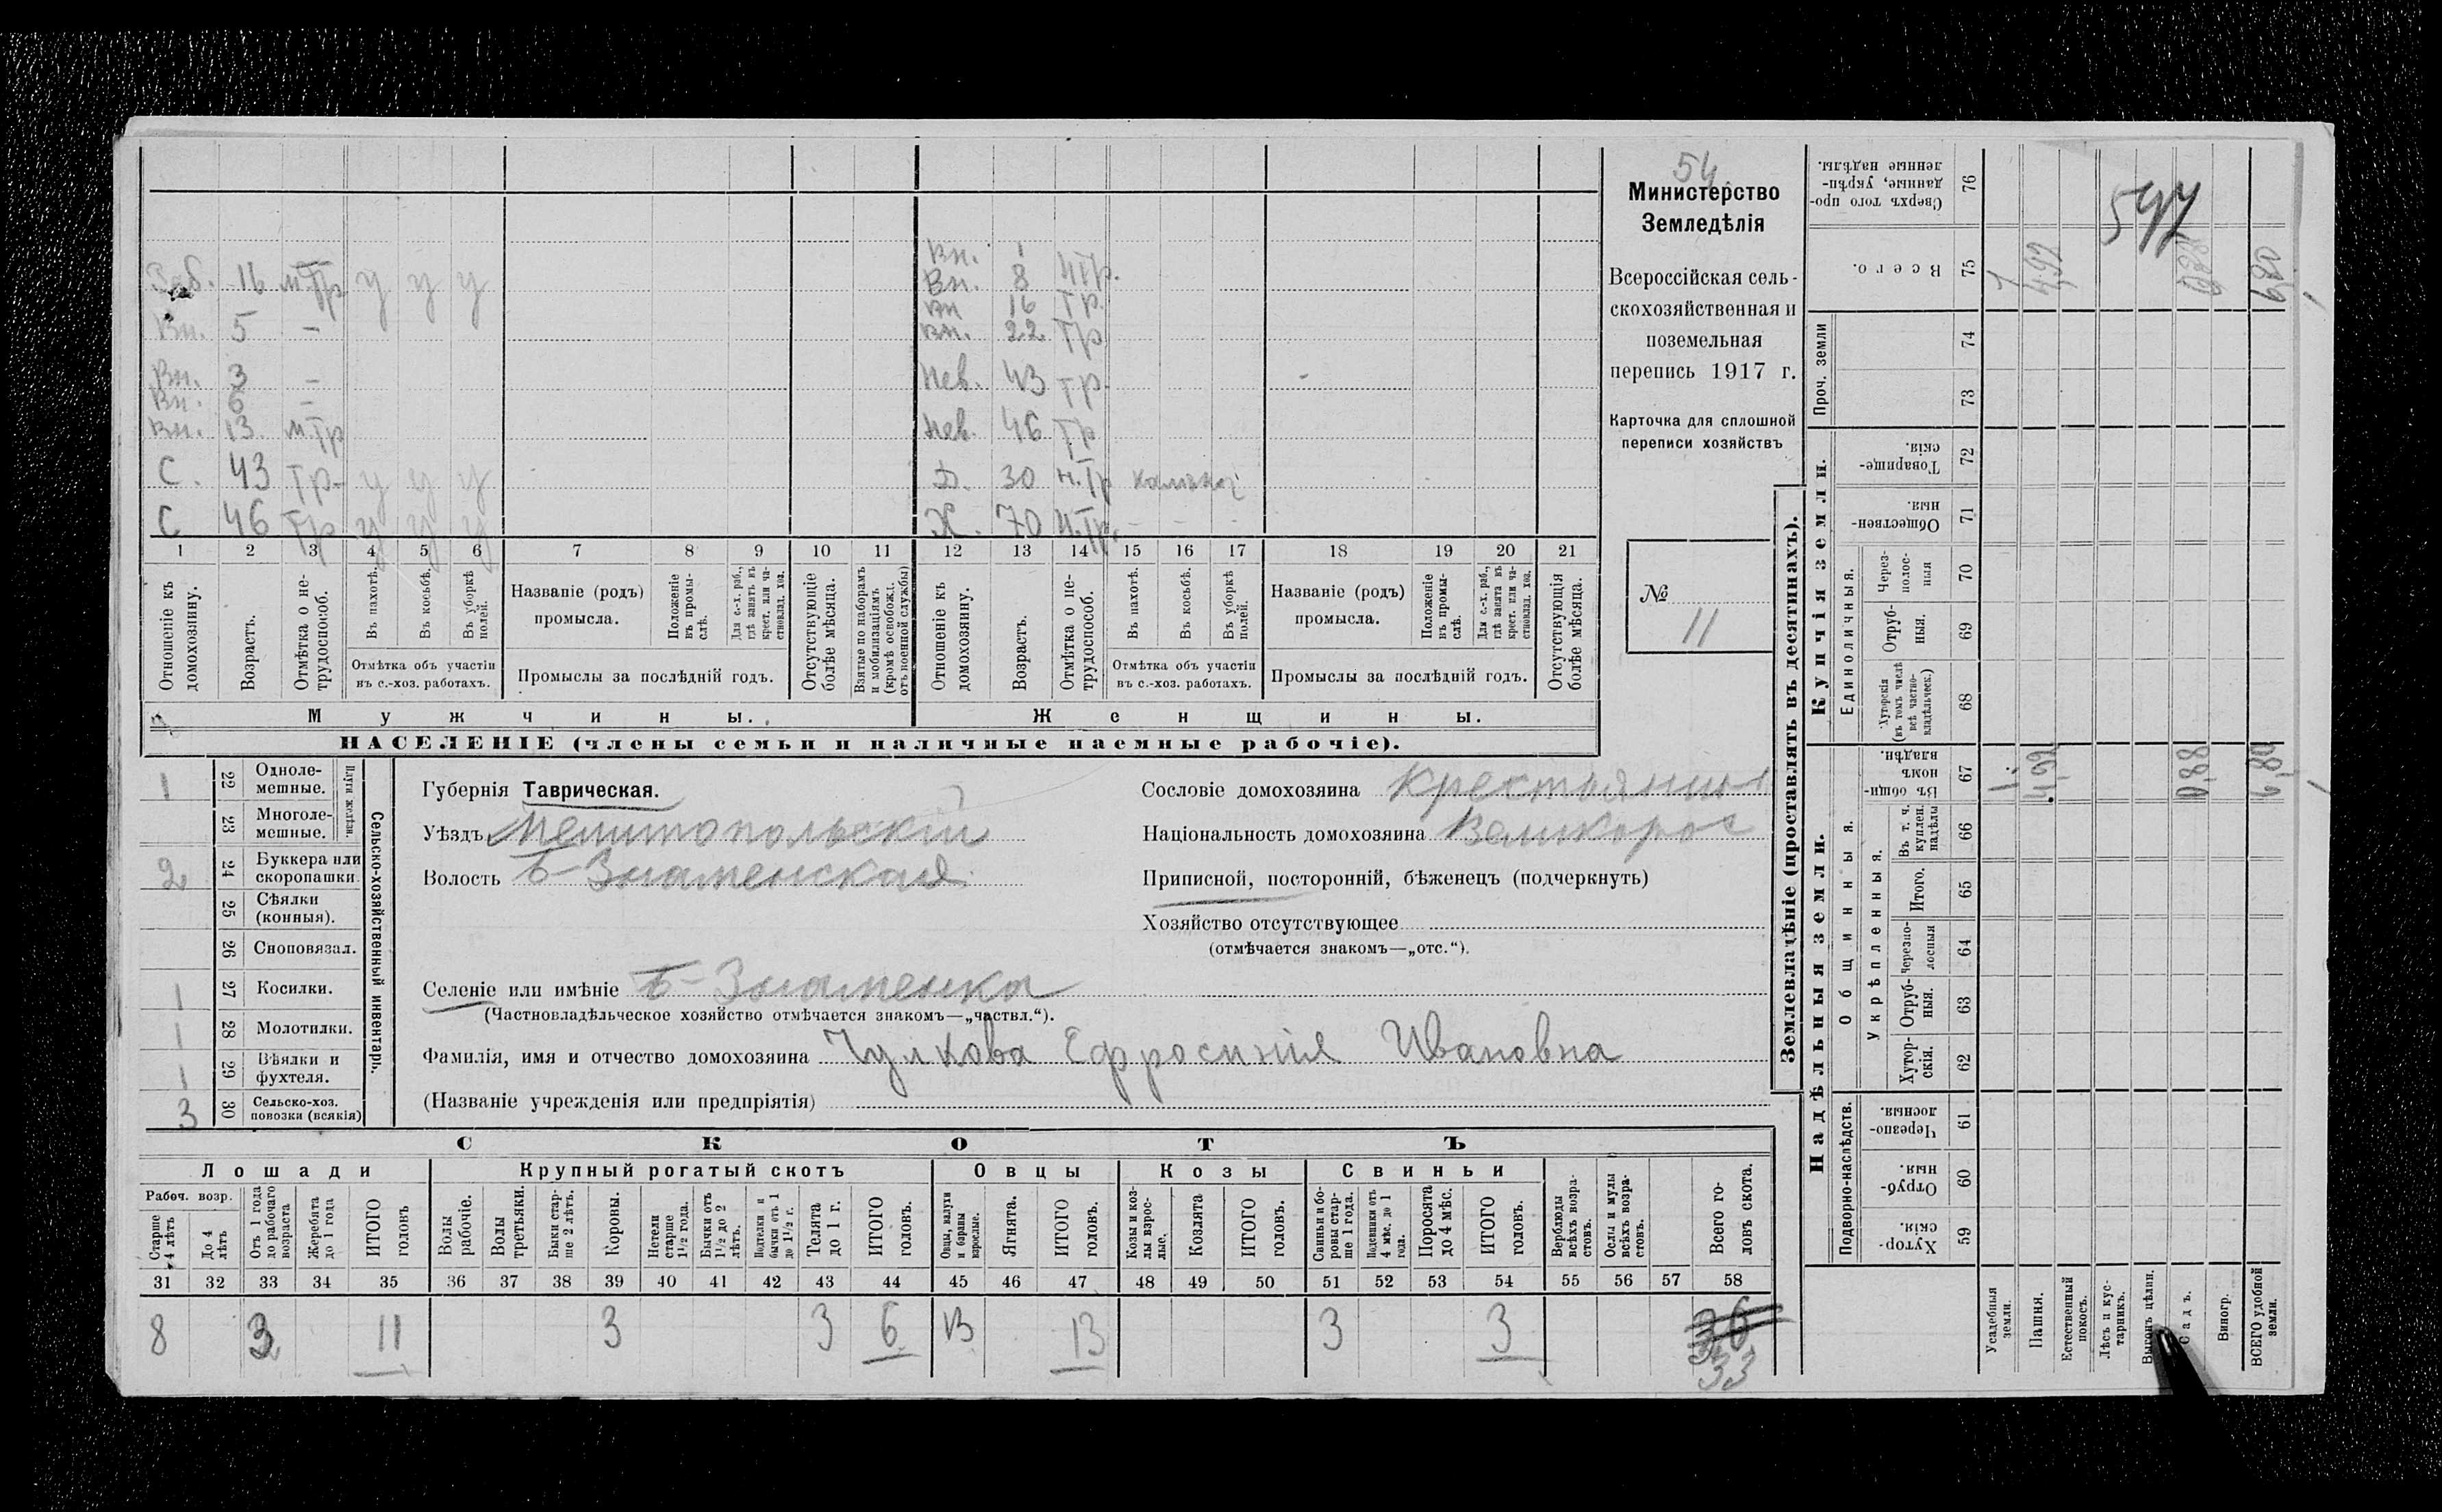 54
Министерство
Земледѣлія
Всероссійская сель-
скохозяйственная и
поземельная
перепись 1917 г.
Карточка для сплошной
переписи хозяйствъ
№
11
Раб. 16 м.Тр у у у
Вн. 5 -
Вн. 3 -
Вн. 6 -
Вн. 13. м.Тр
С. 43 Тр. у у у
С 46 Тр у у у
Вн. 1
Вн. 8 НТр.
Вн 16 Тр.
Вн. 22 Тр
Нев. 43 Тр.
Нев. 46 Тр
Д. 30 Н.Тр
Х. 70 Н.Тр. - - -
1 2 3 4 5 6 7 8 9 10 11 12 13 14 15 16 17 18 19 20 21
Отношеніе къ домохозяину.
Возрастъ.
Отмѣтка о не-трудоспособ.
Въ пахотѣ.
Въ косьбѣ.
Въ уборкѣ полей.
Отмѣтка объ участіи
въ с.-хоз. работахъ.
Названіе (родъ)
промысла.
Положеніе въ промы-слѣ.
Для с.-х. раб., гдѣ занятъ въ крест. или ча-стновлад. хоз.
Промыслы за послѣдній годъ.
Отсутствующіе болѣе мѣсяца.
Взятые по наборамъ и мобилизаціямъ (кромѣ освобожд. отъ военной службы)
Отношеніе къ домохозяину.
Возрастъ.
Отмѣтка о не-трудоспособ.
Въ пахотѣ.
Въ косьбѣ.
Въ уборкѣ полей.
Отмѣтка объ участіи
въ с.-хоз. работахъ.
Названіе (родъ)
промысла.
Положеніе въ промы-слѣ.
Для с.-х. раб., гдѣ занята въ крест. или ча-стновлад. хоз.
Промыслы за послѣдній годъ.
Отсутствующія болѣе мѣсяца.
Мужчины.
Женщины.
НАСЕЛЕНІЕ (члены семьи и наличные наемные рабочіе).
Сельско-хозяйственный инвентарь.
Плуги желѣзн.
1 22 Одноле-мешные.
23 Многоле-мешные.
2 24 Буккера или скоропашки.
25 Сѣялки (конныя).
26 Сноповязал.
1 27 Косилки.
1 28 Молотилки.
1 29 Вѣялки и фухтеля.
3 30 Сельско-хоз. повозки (всякія)
Губернія Таврическая.
Уѣздъ Мелитопольскій
Волость Б-Знаменская
Селеніе или имѣніе Б-Знаменка
(Частновладѣльческое хозяйство отмѣчается знакомъ—„частвл.“).
Фамилія, имя и отчество домохозяина Чулкова Ефросинія Ивановна
(Названіе учрежденія или предпріятія)
Сословіе домохозяина Крестьянинъ
Національность домохозяина Великорос
Приписной, посторонній, бѣженецъ (подчеркнуть)
Хозяйство отсутствующее
(отмѣчается знакомъ—„отс.“).
СКОТЪ
Лошади
Крупный рогатый скотъ
Овцы
Козы
Свиньи
Рабоч. возр.
Старше 4 лѣтъ
До 4 лѣтъ
Отъ 1 года до рабочаго возраста
Жеребята до 1 года
ИТОГО головъ
Волы рабочіе.
Волы третьяки.
Быки стар-ше 2 лѣтъ.
Коровы.
Нетели старше 1½ года.
Бычки отъ 1½ до 2 лѣтъ.
Подтелки и бычки отъ 1 до 1½ г.
Телята до 1 г.
ИТОГО головъ.
Овцы, валухи и бараны взрослые.
Ягнята.
ИТОГО головъ.
Козы и коз-лы взрос-лые.
Козлята
ИТОГО головъ.
Свиньи и бо-ровы стар-ше 1 года.
Подсвинки отъ 4 мѣс. до 1 года.
Поросята до 4 мѣс.
ИТОГО головъ.
Верблюды всѣхъ возра-стовъ.
Ослы и мулы всѣхъ возра-стовъ.
Всего го-ловъ скота.
31 32 33 34 35 36 37 38 39 40 41 42 43 44 45 46 47 48 49 50 51 52 53 54 55 56 57 58
8 3 11 3 3 6 13 13 3 3 36
33
Землевладѣніе (проставлять въ десятинахъ).
Надѣльныя земли.
Купчія земли.
Проч. земли
Подворно-наслѣдств.
Общинныя.
Укрѣпленныя.
Единоличныя.
Хутор-скія. 59
Отруб-ныя. 60
Черезпо-лосныя. 61
Хутор-скія. 62
Отруб-ныя. 63
Черезпо-лосныя 64
Итого. 65
Въ т. ч. куплен. надѣлы 66
Въ общи-номъ владѣн. 67
Хуторскія (въ томъ числѣ всѣ частно-владѣльческ.) 68
Отруб-ныя. 69
Через-полос-ныя 70
Обществен-ныя. 71
Товарище-скія. 72
73
74
Всего. 75
Сверхъ того про-данные, укрѣп-ленные надѣлы. 76
Усадебныя земли.
Пашня.
Естественный покосъ.
Лѣсъ и кус-тарникъ.
Выгонъ цѣлин.
Садъ.
Виногр.
ВСЕГО удобной земли.
1 4,92 0,88 6,80
1 4,92 0,88 6,80